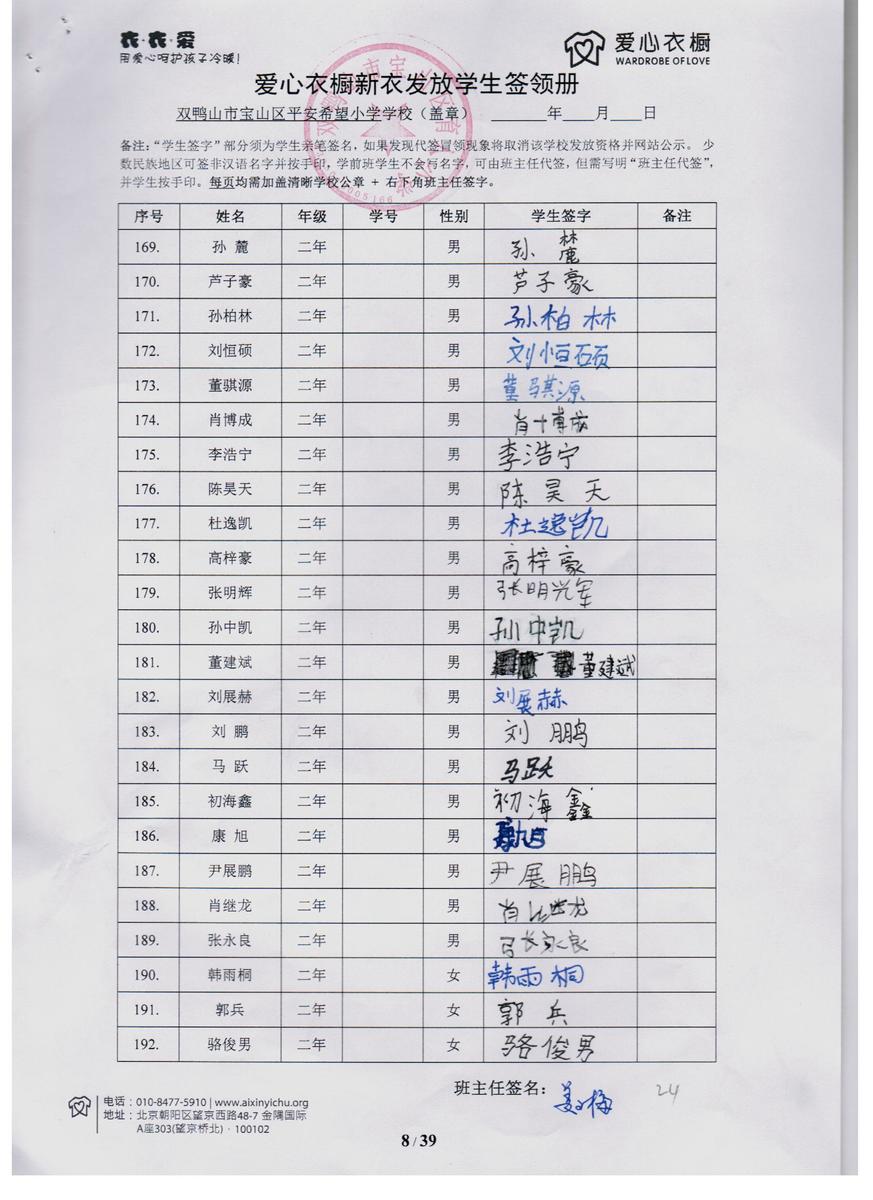 衣·衣·爱
用爱心呵护孩子冷暖!
爱心衣橱
WARDROBE OF LOVE
爱心衣橱新衣发放学生签领册
双鸭山市宝山区平安希望小学学校（盖章） ______年____月____日
备注：“学生签字”部分须为学生亲笔签名，如果发现代签冒领现象将取消该学校发放资格并网站公示。 少
数民族地区可签非汉语名字并按手印，学前班学生不会写名字，可由班主任代签，但需写明“班主任代签”，
并学生按手印。每页均需加盖清晰学校公章 + 右下角班主任签字。
序号 姓名 年级 学号 性别 学生签字 备注
169. 孙 麓 二年 男 孙 麓
170. 芦子豪 二年 男 芦子豪
171. 孙柏林 二年 男 孙柏林
172. 刘恒硕 二年 男 刘恒硕
173. 董骐源 二年 男 董骐源
174. 肖博成 二年 男 肖博成
175. 李浩宁 二年 男 李浩宁
176. 陈昊天 二年 男 陈昊天
177. 杜逸凯 二年 男 杜逸凯
178. 高梓豪 二年 男 高梓豪
179. 张明辉 二年 男 张明辉
180. 孙中凯 二年 男 孙中凯
181. 董建斌 二年 男 董建斌
182. 刘展赫 二年 男 刘展赫
183. 刘 鹏 二年 男 刘 鹏
184. 马 跃 二年 男 马跃
185. 初海鑫 二年 男 初海鑫
186. 康 旭 二年 男 康旭
187. 尹展鹏 二年 男 尹展鹏
188. 肖继龙 二年 男 肖继龙
189. 张永良 二年 男 张永良
190. 韩雨桐 二年 女 韩雨桐
191. 郭兵 二年 女 郭 兵
192. 骆俊男 二年 女 骆俊男
班主任签名： 24
电话：010-8477-5910 | www.aixinyichu.org
地址：北京朝阳区望京西路48-7 金隅国际
A座303(望京桥北) · 100102
8 / 39